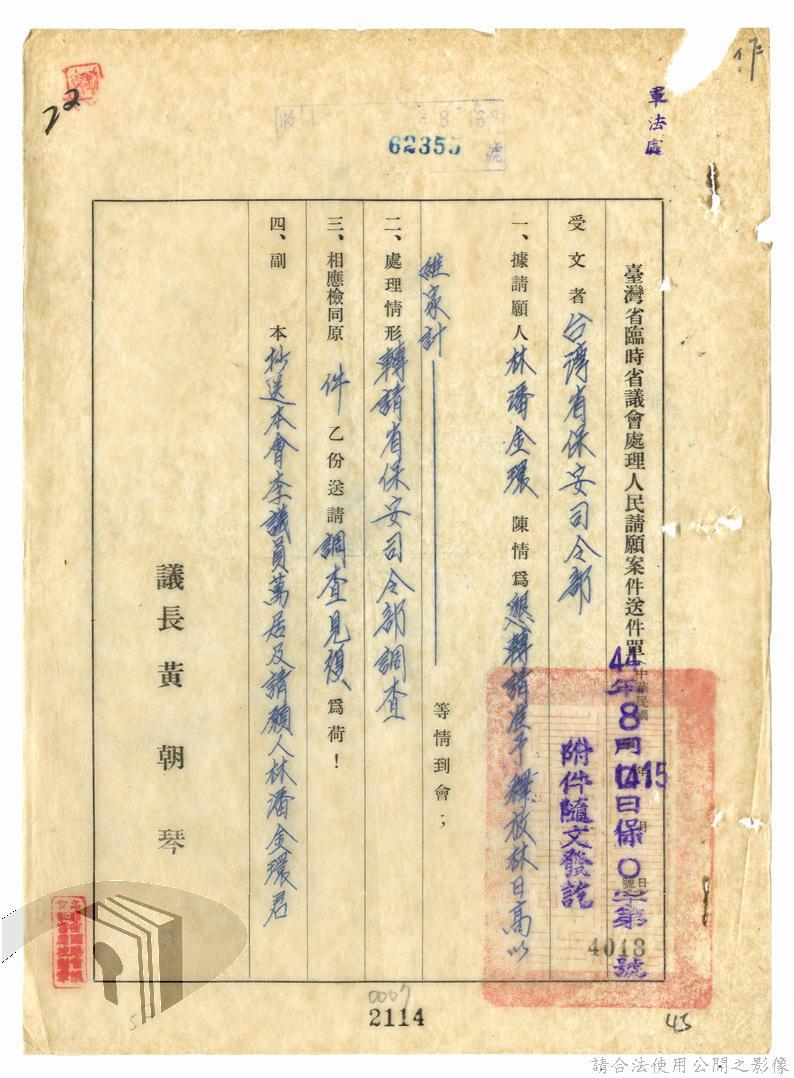 作
軍法處
22
62355
號
臺灣省臨時省議會處理人民請願案件送件單
中華民國 年 月 日
號
44年8月15日保〇字第 號
4013
附件隨文發訖
受文者 台湾省保安司令部
一、據請願人 林潘金環 陳情為 懇轉請准予釋放林日高以
維家計 等情到會；
二、處理情形 轉請省保安司令部調查
三、相應檢同原 件 乙份送請 調查見復 為荷！
四、副 本 抄送本會李議員萬居及請願人林潘金環君
議長 黃朝琴
0007
2114
45
請合法使用公開之影像